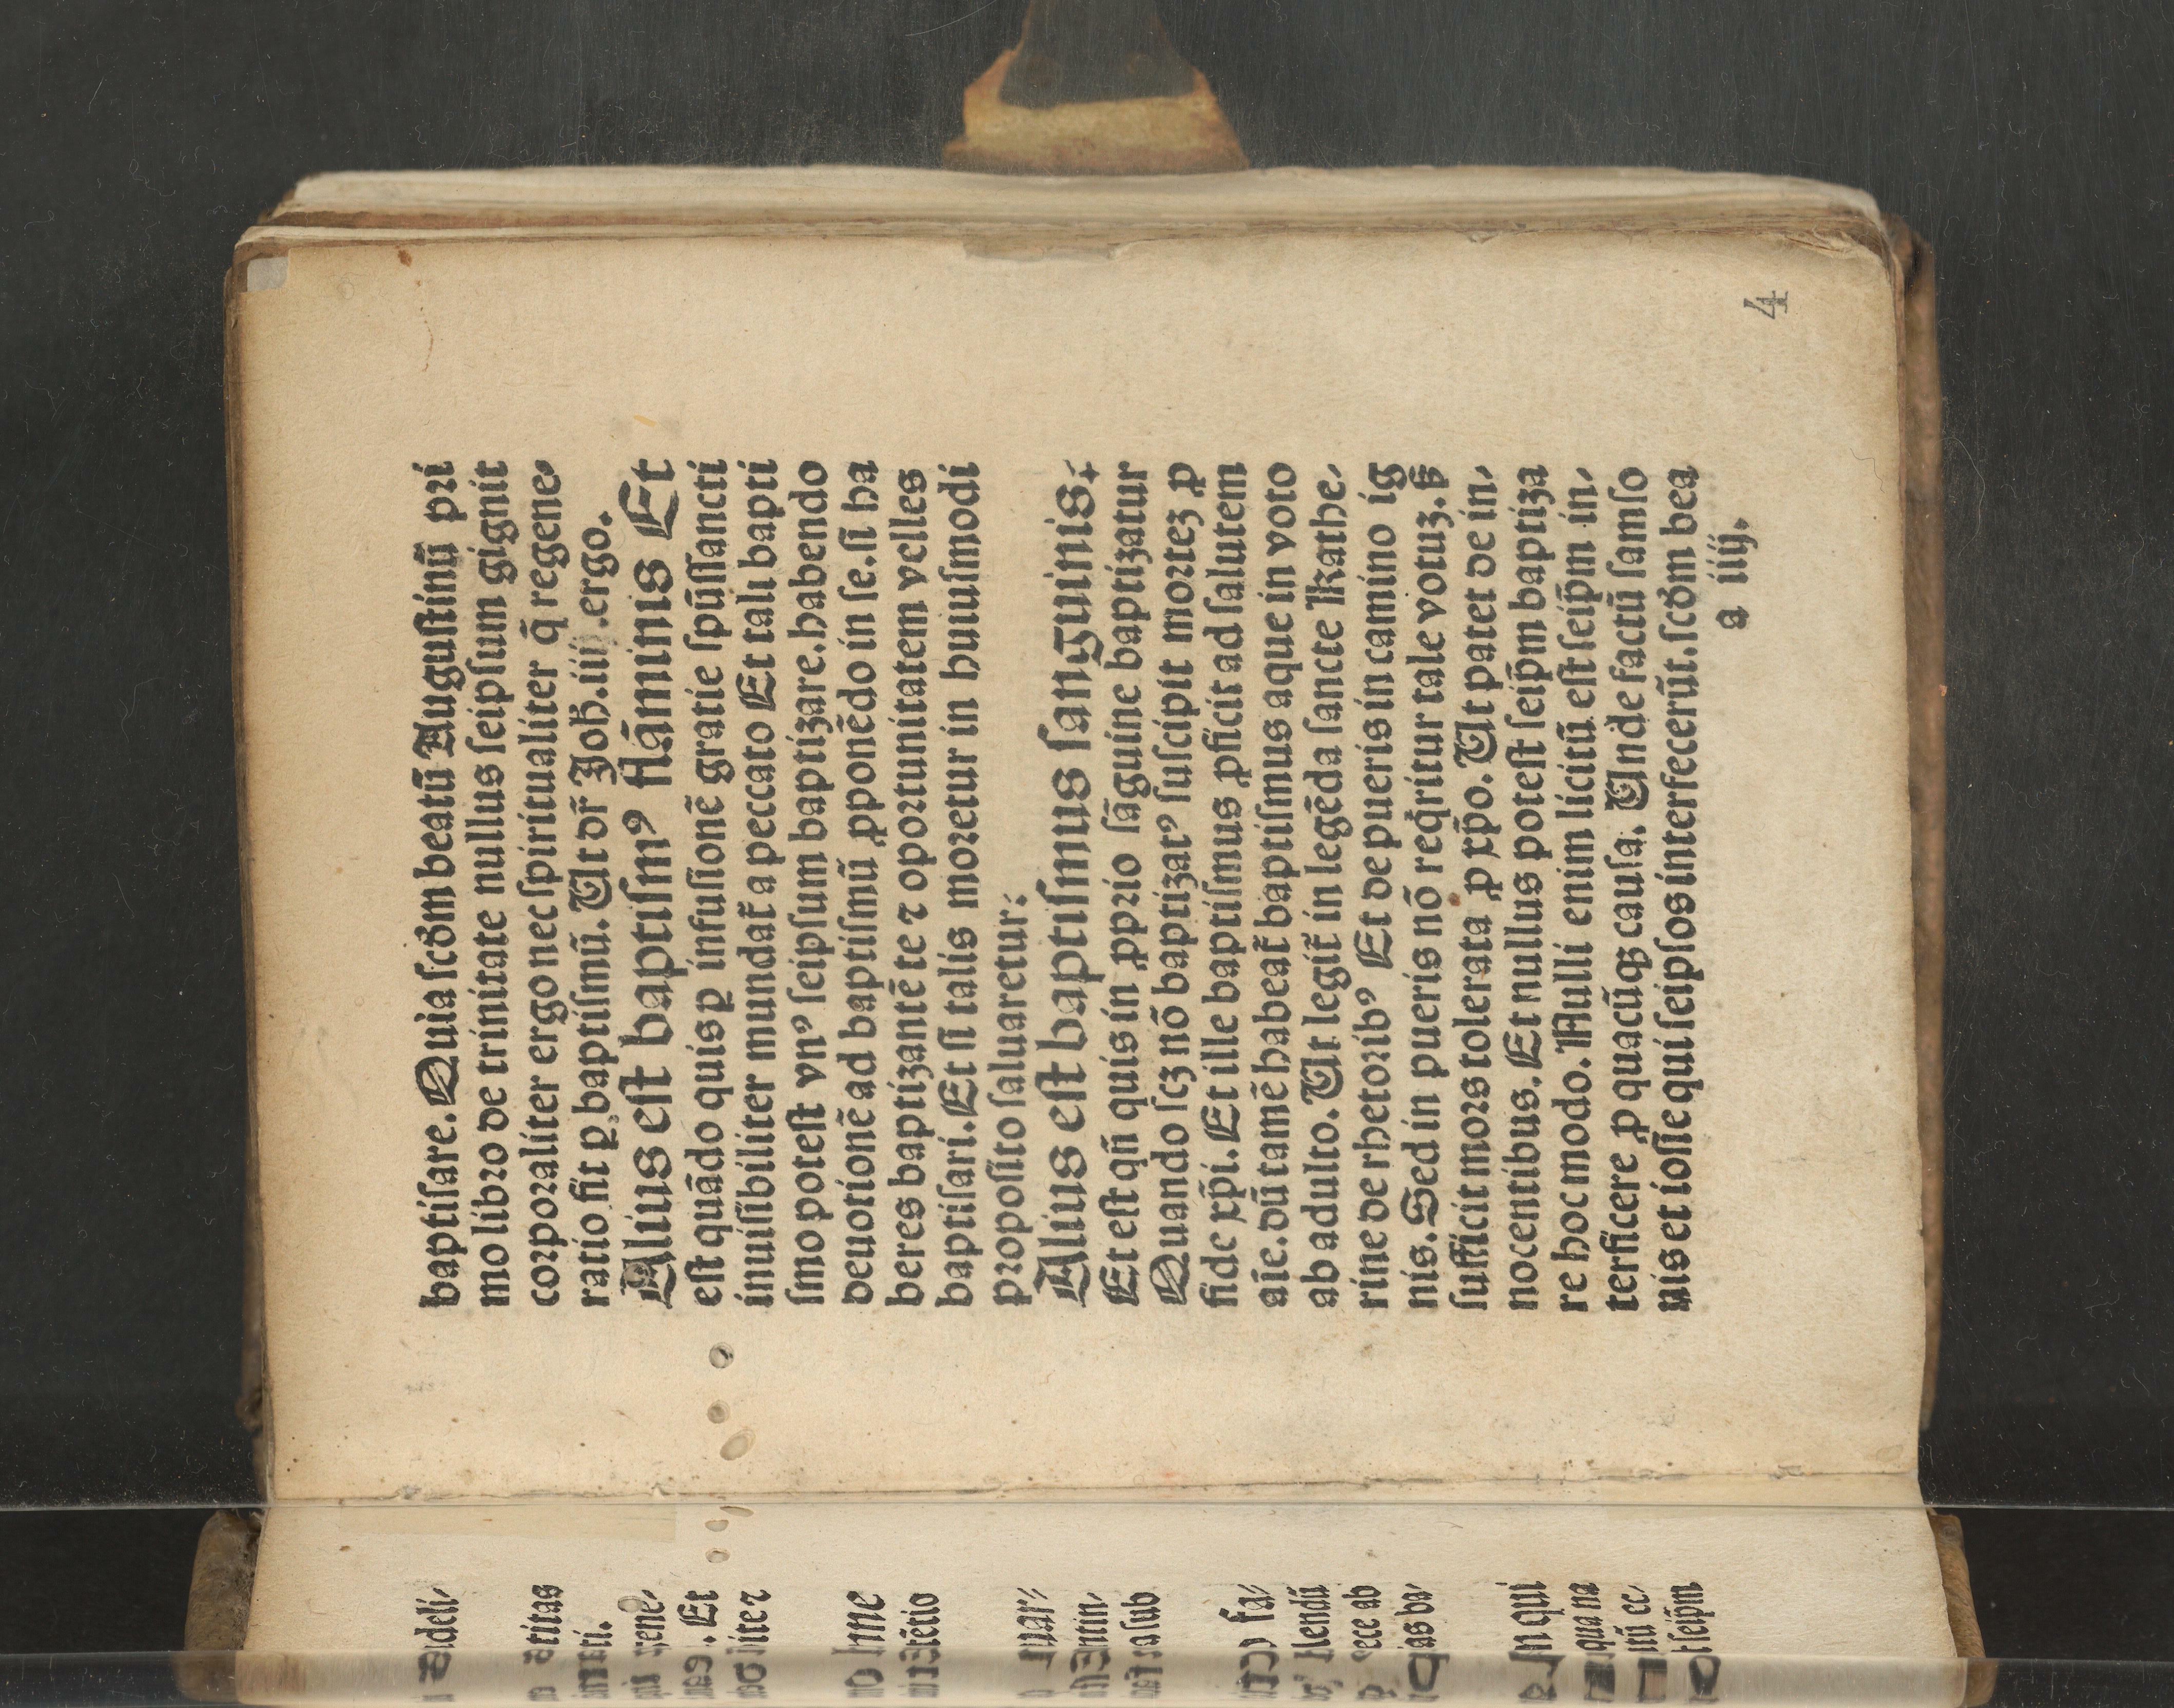 baptiſare. Quia ſcðm beatū Auguſtinū pri
mo libro de trinitate nullus ſeipſum gignit
corporaliter ergo nec ſpiritualiter q̄ regene⸗
ratio fit ꝑ baptiſmū. Ut dr̄ Joh̄. iiij. ergo.
Alius eſt baptiſmꝰ flāminis Et
eſt quādo quis ꝑ infuſionē gratie ſpūſſancti
inuiſibiliter mundat̄ a peccato Et tali bapti
ſmo poteſt vnꝰ ſeipſum baptizare. habendo
deuotionē ad baptiſmū ꝓponēdo in ſe. ſi ha
beres baptizantē te ⁊ oportunitatem velles
baptiſari. Et ſi talis moretur in huiuſmodi
propoſito ſaluaretur:
Alius eſt baptiſmus ſanguinis.
Et eſt qn̄ quis in ꝓprio ſāguine baptizatur
Quando ſcꝫ nō baptizatꝰ ſuſcipit mortez ꝓ
fide xp̄i. Et ille baptiſmus ꝓficit ad ſalutem
aīe. dū tamē habeat̄ baptiſmus aque in voto
ab adulto. Ut legit̄ in legēda ſancte Kathe⸗
rine de rhetoribꝰ Et de pueris in camino ig
nis. Sed in pueris nō reqͥritur tale votuz. ſꝫ
ſufficit mors tolerata ꝓ xp̄o. Ut patet de in⸗
nocentibus. Et nullus poteſt ſeip̄m baptiza
re hoc modo. Nulli enim licitū eſt ſeip̄m in⸗
terficere ꝓ quacūqꝫ cauſa. Unde factū ſamſo
nis et ioſie qui ſeipſos interfecerūt. ſcðm bea
a iiij.
4